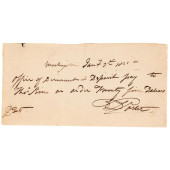 Washington Jan 7th 1820
Office of Discount & Deposit pay to
or order Twenty five Dollars
D Porter